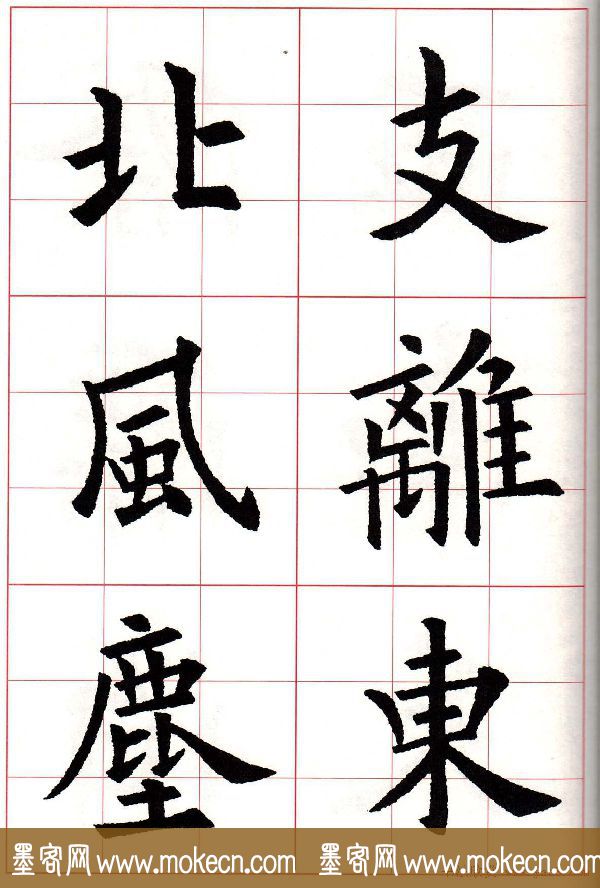 支離東
北風塵
墨客网 www.mokecn.com 墨客网 www.mokecn.com